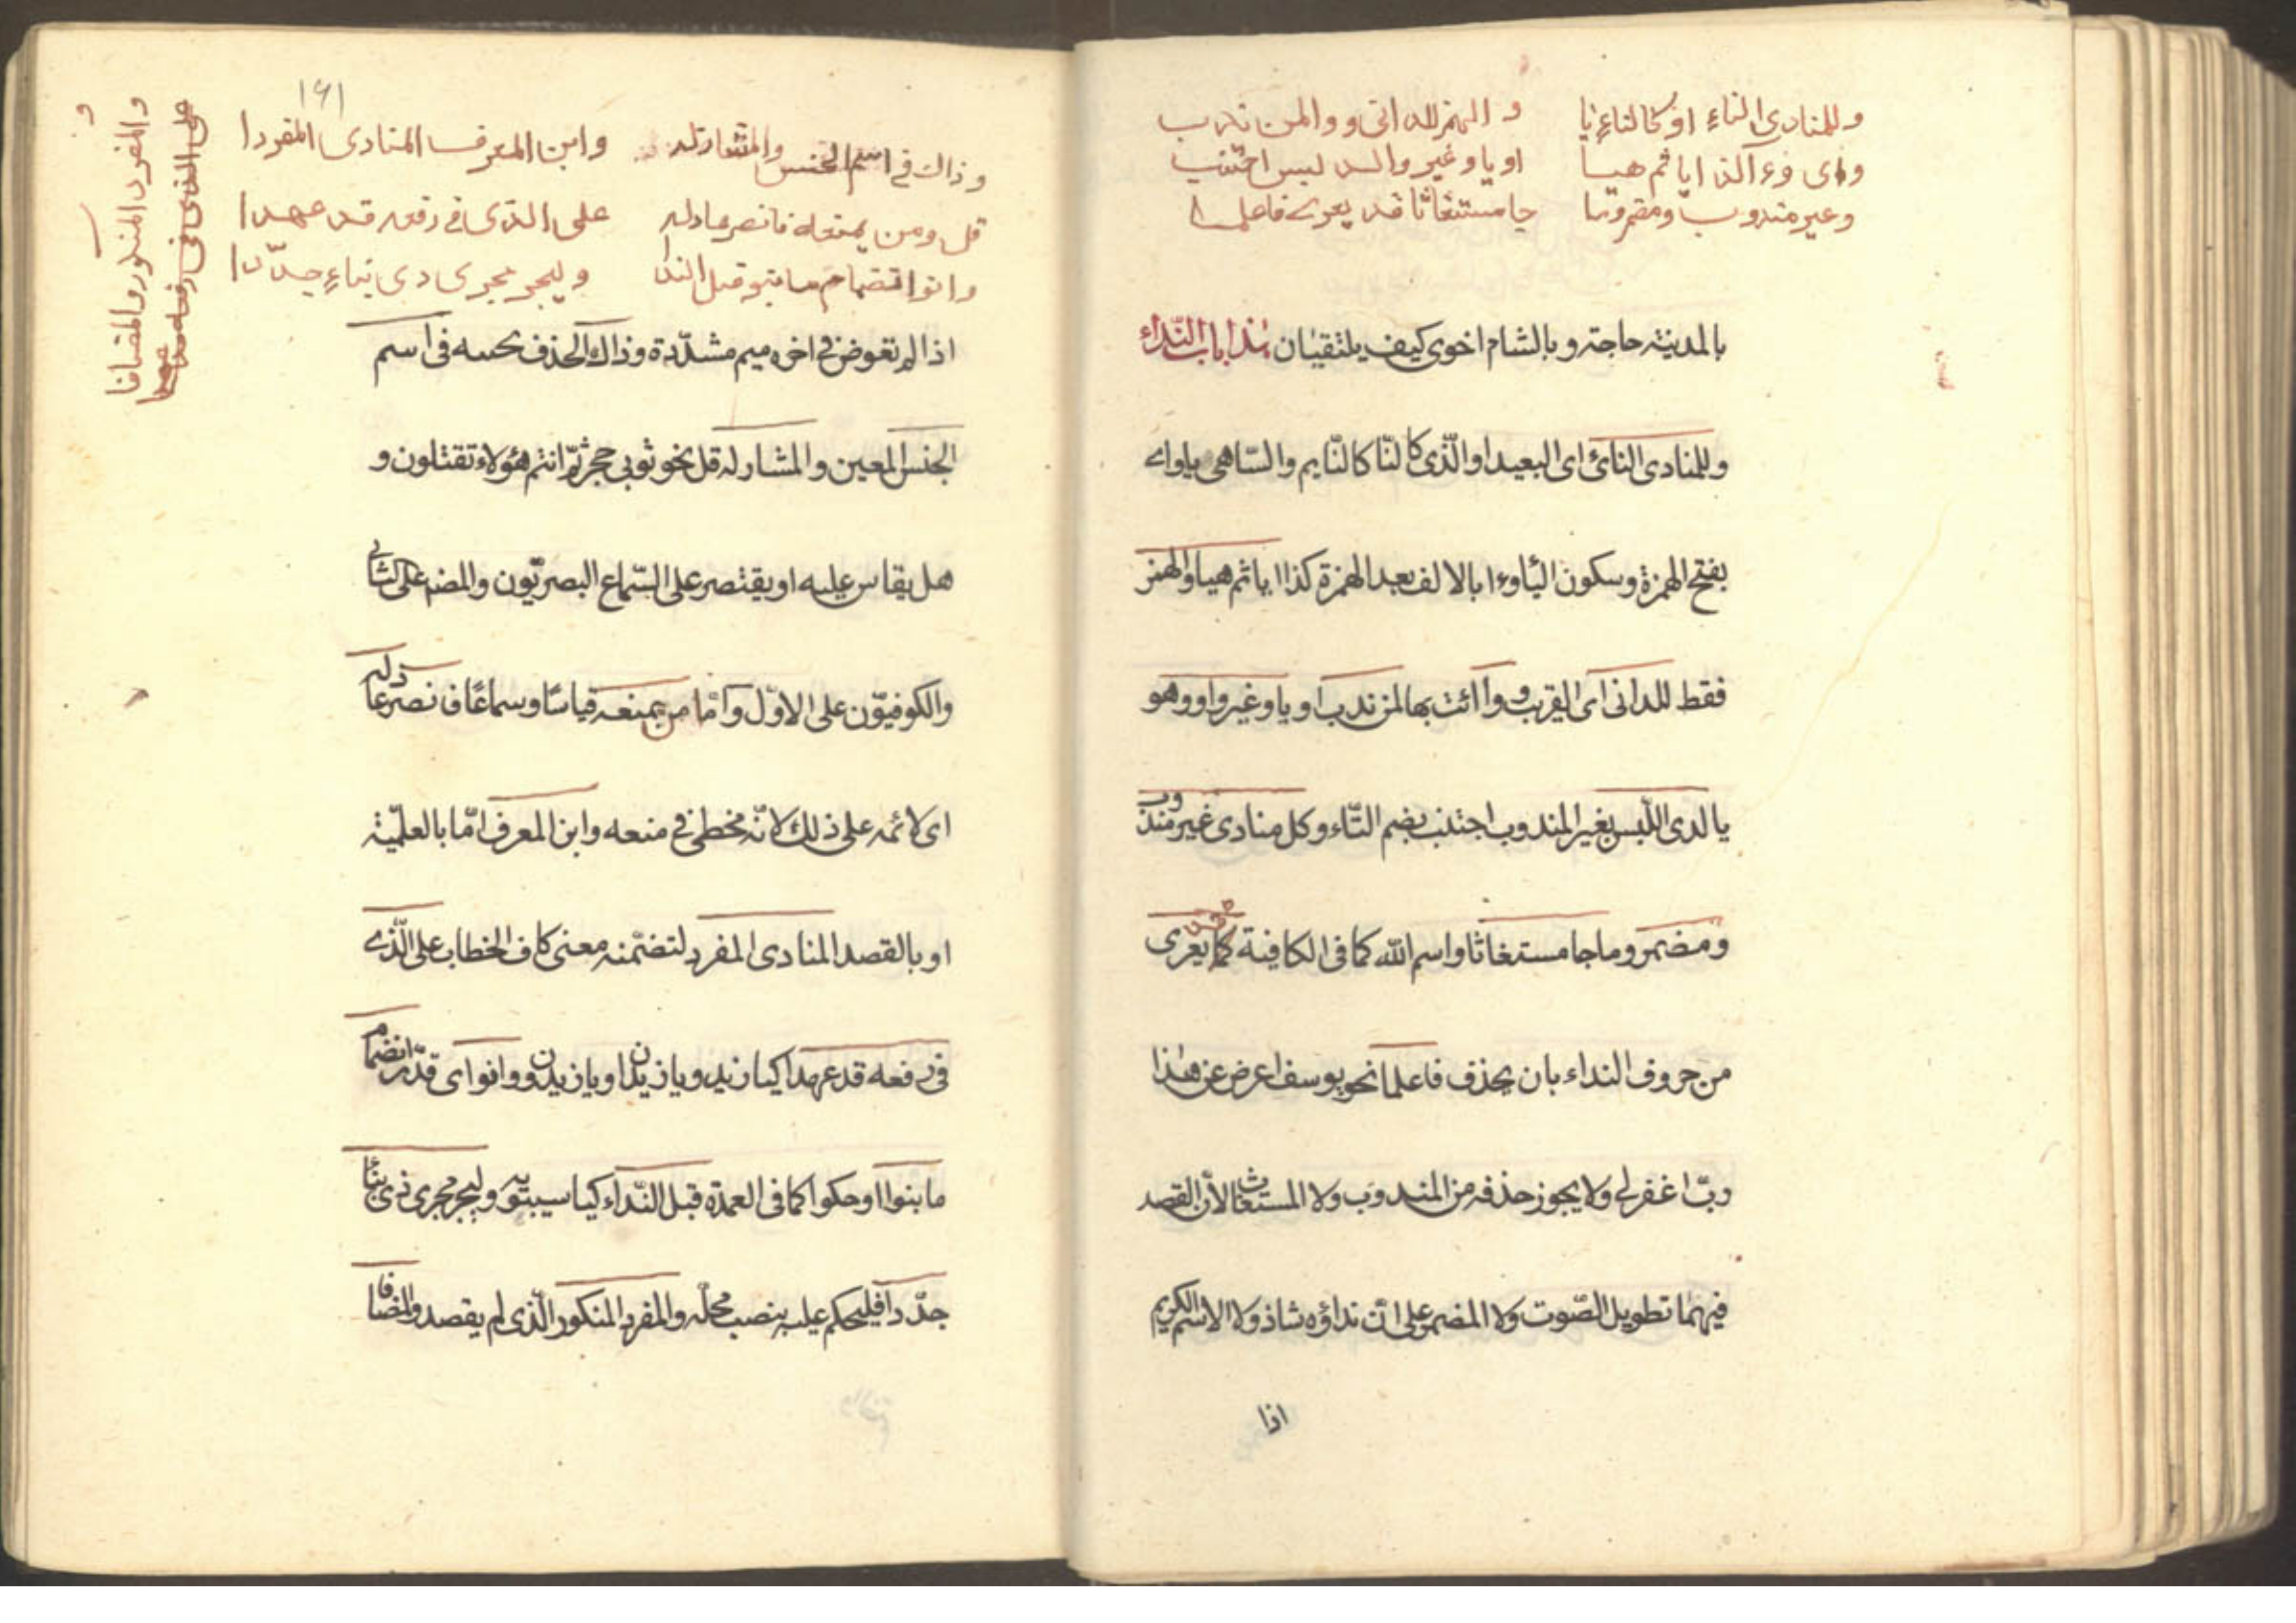 وللمنادى الناءِ او كالناءِ يا    و الهمز للدانى ووا لمن ندب
واى وءا كذا ايا ثم هيا    او يا وغير وا لدى لبس اجتنب
وغير مندوب ومضمر وما    جا مستغاثا قد يعرى فاعلما
بالمدينة حاجة وبالشام اخوى كيف يلتقيان هذا باب النّداء
وللمنادى النائ اى البعيد او الّذى كالنّا كالنّايم والسّاهى يا واے
بفتح الهمزة وسكون اليا وءا بالالف بعد الهمزة كذا ايا ثم هيا والهمز
فقط للدانى اى القريب و وا ائت بها لمن ندب او يا وغير وا وهو
يا لدى اللّبس بغير المندوب اجتنب بضم التّاء وكل منادى غير مندوب
ومضمر وما جا مستغاثا واسم الله كما فى الكافية قد يعرى
من حروف النداء بان يحذف فاعلما نحو يوسف اعرض عن هذا
ربّ اغفر لي ولا يجوز حذفه من المندوب ولا المستغاث لأن القصد
فيهما تطويل الصّوت ولا المضمر على أن نداؤه شاذ ولا الاسم الكريم
اذا
١٦١
وذاك في اسم الجنس والمشار له    وابن المعرف المنادى المفردا
قل ومن يمنعه فانصر عاذله    على الذى في رفعه قد عهدا
وانو انضمام ما بنو قبل الندا    وليجر مجرى ذى بناءٍ جدّدا
على الذى فى رفعه قد عهدا
والمفرد المنكور والمضافا
و
اذا لم تعوض في اخره ميم مشدّدة وذاك الحذف يحسه فى اسم
الجنس المعين والمشار له قل نحو ثوبي حجر ثمّ انتم هؤلاء تقتلون و
هل يقاس عليه او يقتصر على السّماع البصريّون والمض على الثاني
والكوفيّون على الاوّل وامّا من يمنعه قياسًا وسماعًا فانصر عاذله
اى لائمه على ذلك لانّه مخطى في منعه وابن المعرف امّا بالعلميّة
او بالقصد المنادى المفرد لتضمّنه معنى كاف الخطاب على الّذے
فى رفعه قد عهدا كيا زيد ويا زيدان او يا زيدون وانو اى قدّر انضمام
ما بنوا او حكوا كما فى العمدة قبل النّداء كيا سيبويه وليجر مجرى ذى بنا
جدّدا فليحكم عليه بنصب محلّه والمفرد المنكور الّذى لم يقصد والمضافا